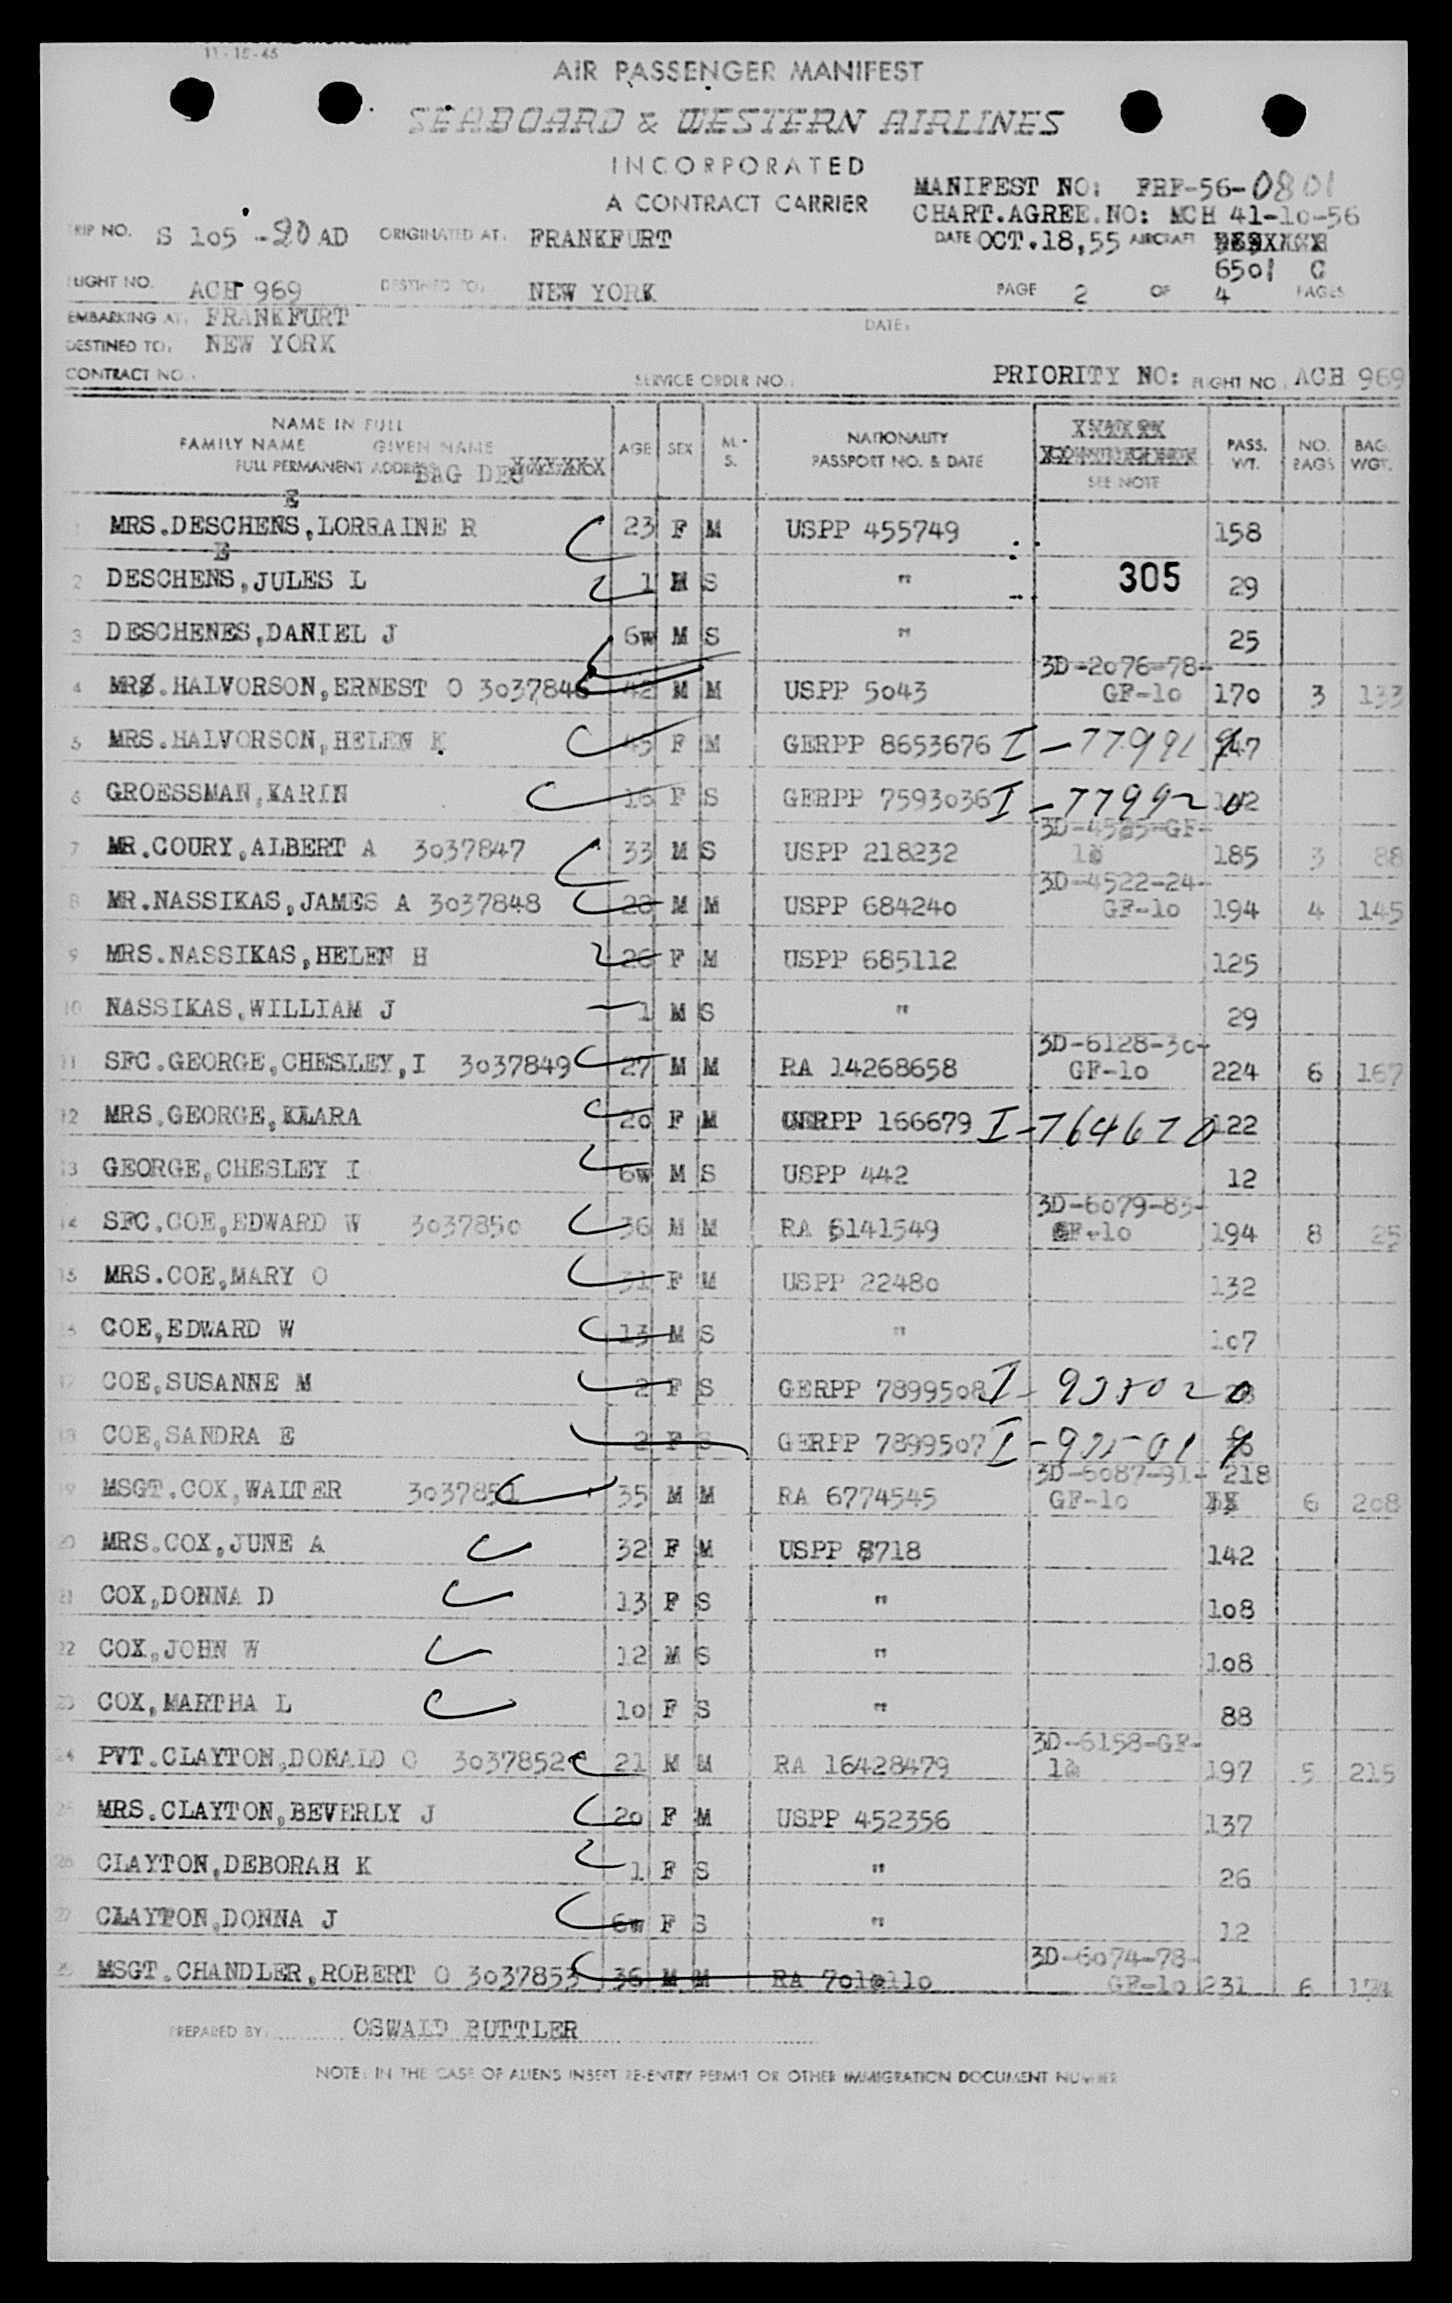 11-15-45
AIR PASSENGER MANIFEST
SEABOARD & WESTERN AIRLINES
INCORPORATED
A CONTRACT CARRIER
MANIFEST NO: FRF-56-0801
CHART.AGREE.NO: MCH 41-10-56
TRIP NO. S 105 -20 AD ORIGINATED AT: FRANKFURT DATE OCT.18,55 AIRCRAFT
6501 C
FLIGHT NO. ACH 969 DESTINED TO: NEW YORK PAGE 2 OF 4 PAGES
EMBARKING AT: FRANKFURT DATE:
DESTINED TO: NEW YORK
CONTRACT NO.: SERVICE ORDER NO.: PRIORITY NO: FLIGHT NO. ACH 969
NAME IN FULL
FAMILY NAME GIVEN NAME AGE SEX M.- S. NATIONALITY PASSPORT NO. & DATE SEE NOTE PASS. WT. NO. BAGS BAG. WGT.
FULL PERMANENT ADDRESS BAG DES XXXXXX
E
1 MRS.DESCHENS,LORRAINE R 23 F M USPP 455749 158
E
2 DESCHENS,JULES L 1 M S " 305 29
3 DESCHENES,DANIEL J 6w M S " 25
4 MR.HALVORSON,ERNEST O 3037846 42 M M USPP 5043 3D-2076-78-GF-10 170 3 133
5 MRS.HALVORSON,HELEN K 45 F M GERPP 8653676 I-779919 147
6 GROESSMAN,KARIN 16 F S GERPP 7593036 I-779920
7 MR.COURY,ALBERT A 3037847 33 M S USPP 218232 185 3 88
8 MR.NASSIKAS,JAMES A 3037848 28 M M USPP 684240 3D-4522-24-GF-10 194 4 145
9 MRS.NASSIKAS,HELEN H 26 F M USPP 685112 125
10 NASSIKAS,WILLIAM J 1 M S " 29
11 SFC.GEORGE,CHESLEY,I 3037849 27 M M RA 14268658 3D-6128-30-GF-10 224 6 167
12 MRS.GEORGE,KLARA 20 F M GERPP 166679 I-764670 122
13 GEORGE,CHESLEY I 6w M S USPP 442 12
14 SFC.COE,EDWARD W 3037850 36 M M RA 6141549 3D-6079-83-GF-10 194 8 25
15 MRS.COE,MARY O 31 F M USPP 22480 132
16 COE,EDWARD W 13 M S " 107
17 COE,SUSANNE M 2 F S GERPP 7899508 28
18 COE,SANDRA E 2 F S GERPP 7899507
19 MSGT.COX,WALTER 3037851 35 M M RA 6774545 3D-6087-91-GF-10 218 6 208
20 MRS.COX,JUNE A 32 F M USPP 8718 142
21 COX,DONNA D 13 F S " 108
22 COX,JOHN W 12 M S " 108
23 COX,MARTHA L 10 F S " 88
24 PVT.CLAYTON,DONALD C 3037852 21 M M RA 16428479 3D-6158-GF-10 197 5 215
25 MRS.CLAYTON,BEVERLY J 20 F M USPP 452356 137
26 CLAYTON,DEBORAH K 1 F S " 26
27 CLAYTON,DONNA J 6w F S " 12
28 MSGT.CHANDLER,ROBERT O 3037853 36 M M RA 3D-6074-78-GF-10 231 6 174
PREPARED BY: OSWALD BUTTLER
NOTE: IN THE CASE OF ALIENS INSERT RE-ENTRY PERMIT OR OTHER IMMIGRATION DOCUMENT NUMBER